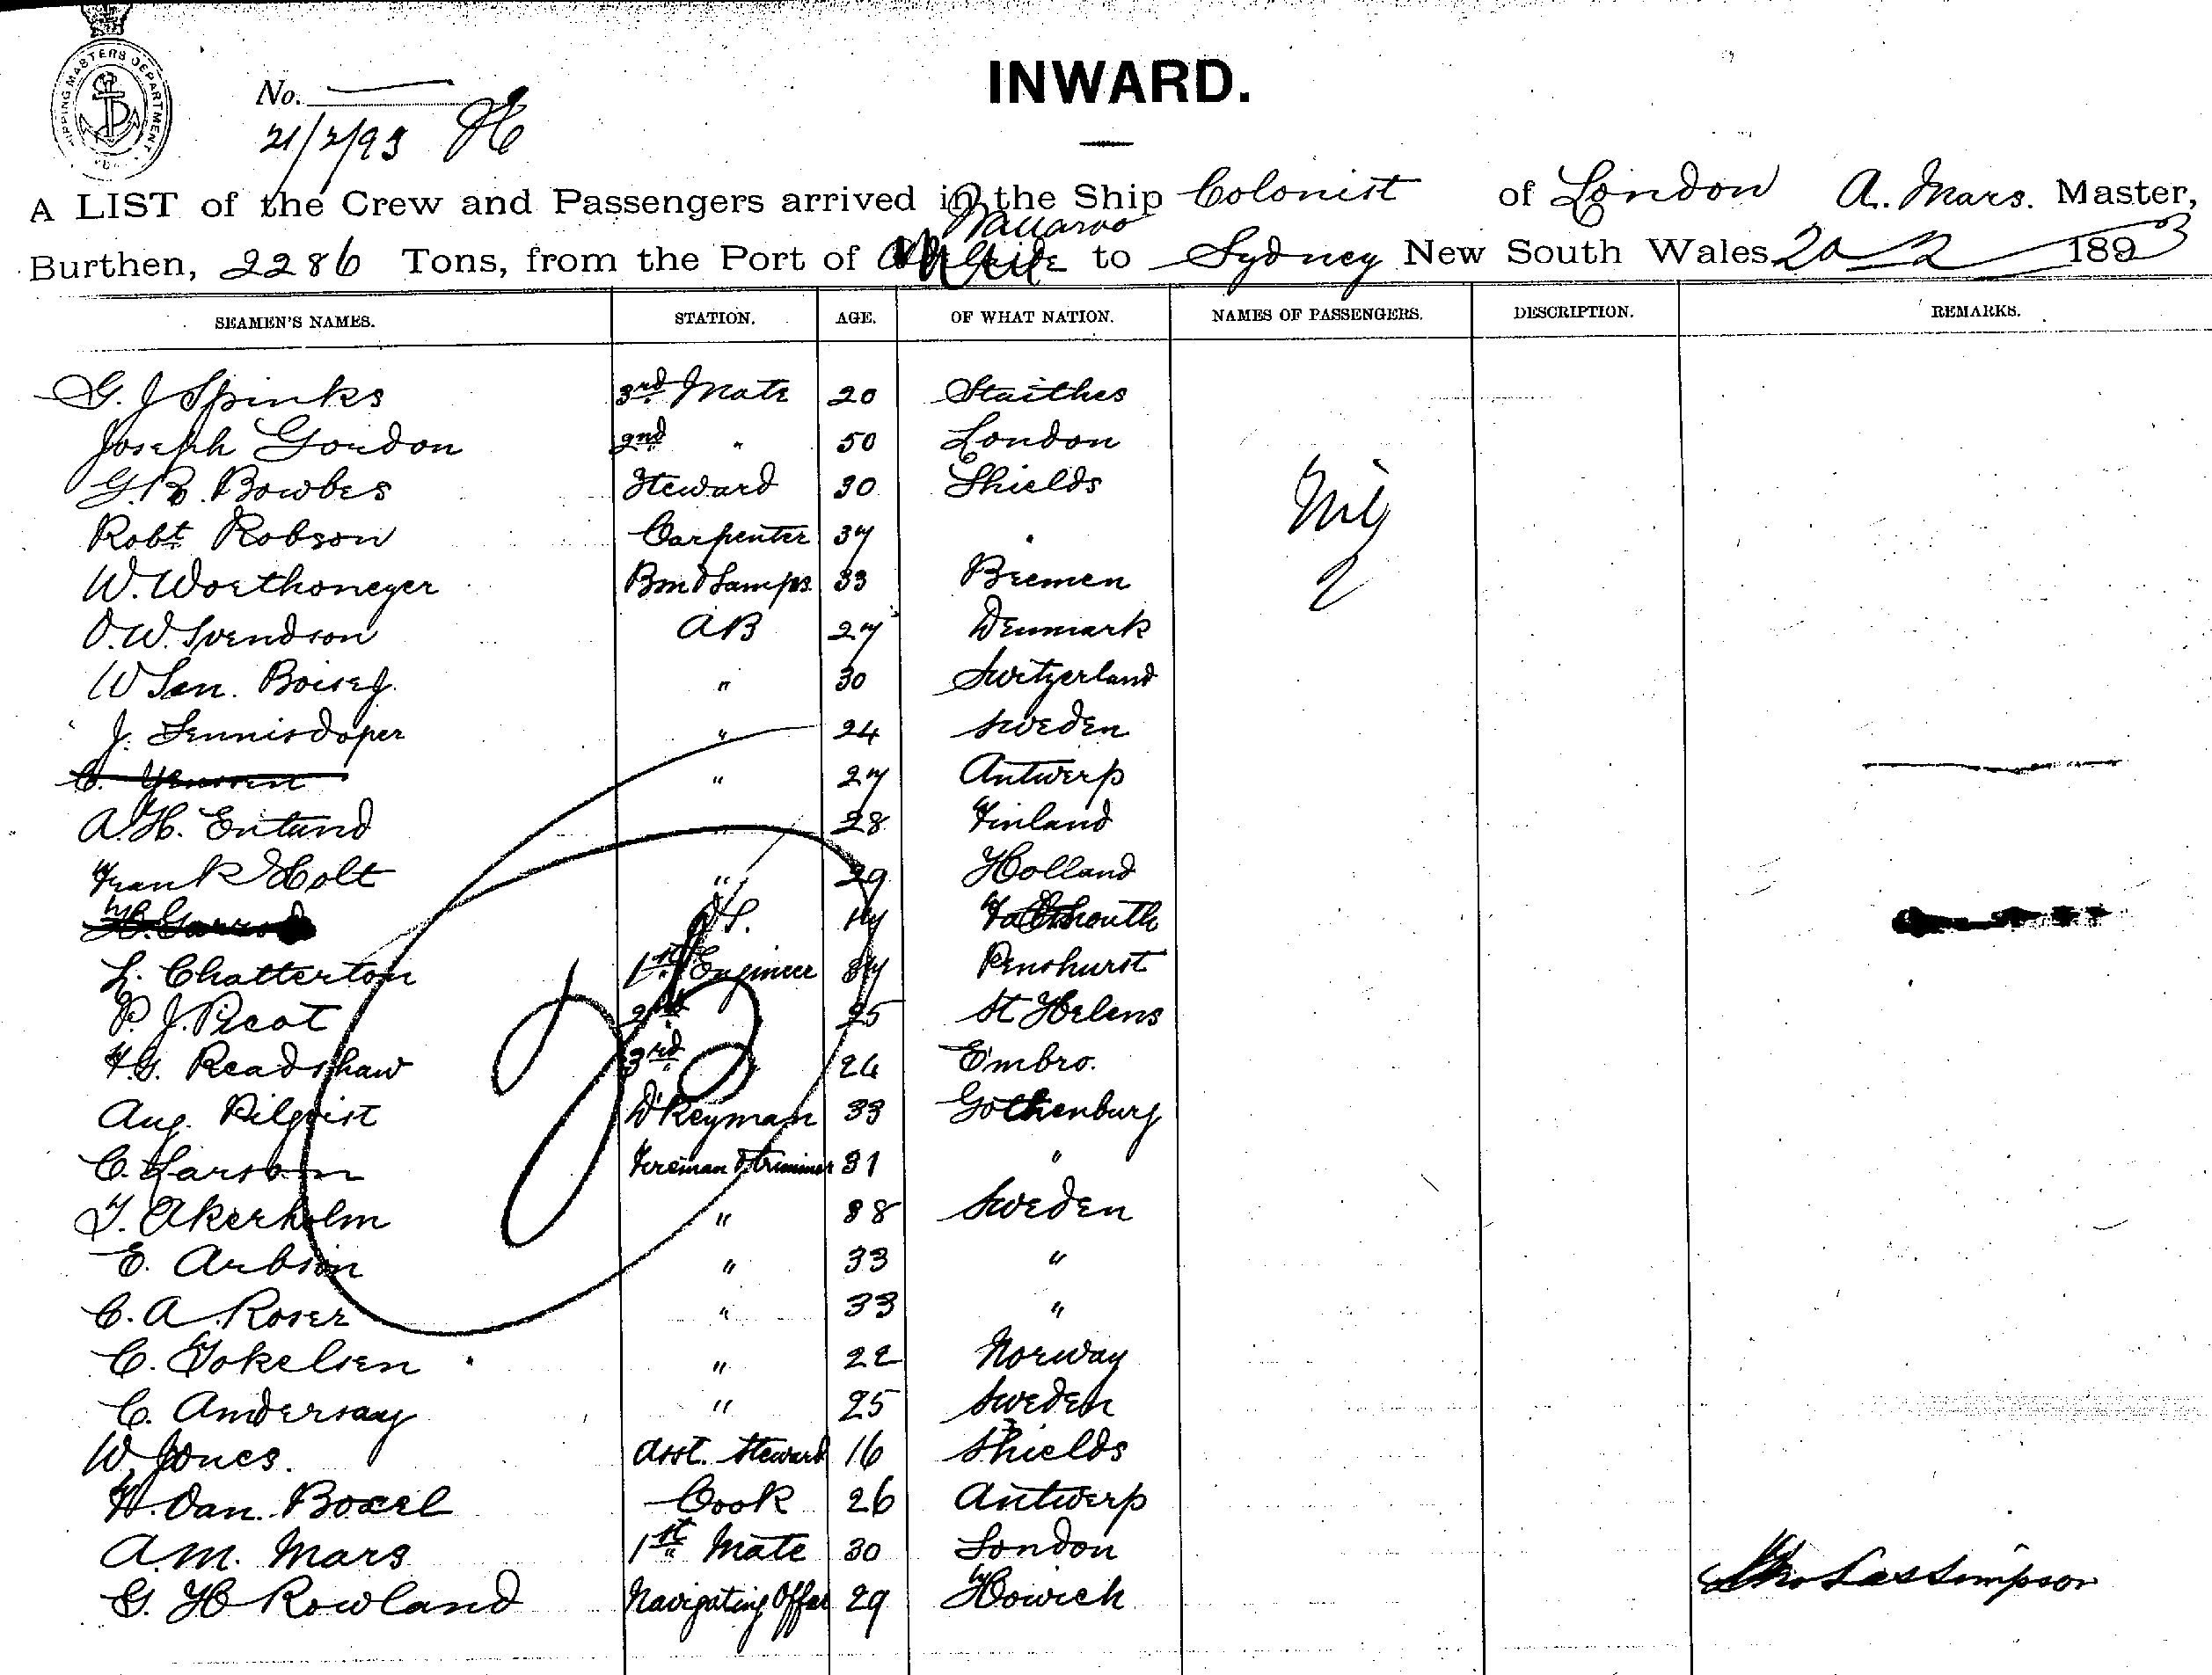 SHIPPING MASTERS DEPARTMENT
INWARD.
No.
21/2/93
A LIST of the Crew and Passengers arrived in the Ship Colonist of London A. Mars. Master,
Wallaroo
Burthen, 2286 Tons, from the Port of to Sydney New South Wales 20 - 2 1893
SEAMEN'S NAMES. STATION. AGE. OF WHAT NATION. NAMES OF PASSENGERS. DESCRIPTION. REMARKS.
G. J Spinks 3rd Mate 20 Staithes
Joseph Goudon 2nd " 50 London
G.B. Bowbes Steward 30 Shields
Nil
Robt Robson Carpenter 37 "
W. Worthoneyer Bm & Lamps 33 Bremen
O.W. Svendson AB 27 Denmark
W Sen. Boisej. " 30 Switzerland
J. Sennisdoper " 24 Sweden
C. Yenssen " 27 Antwerp
A.H. Enlund " 28 Finland
Frank Holt " 29 Holland
H. Garrod O.S. 17 Falmouth
L. Chatterton 1st Engineer 37 Penshurst
P. J. Picot 2nd 25 St Helens
F.G. Readshaw 3rd " 24 Embro.
Aug. Pilqvist D'Keyman 33 Gothenburg
C. Larsson Fireman & trimmer 31 "
T. Akerholm " 38 Sweden
E. Arbsin " 33 "
C. A. Roser " 33 "
C. Tokelsen " 22 Norway
C. Andersay " 25 Sweden
W. Jones. Asst. Steward 16 Shields
H. Van. Boxel Cook 26 Antwerp
A.M. Mars 1st Mate 30 London
G. H Rowland Navigating Offcer 29 Howick